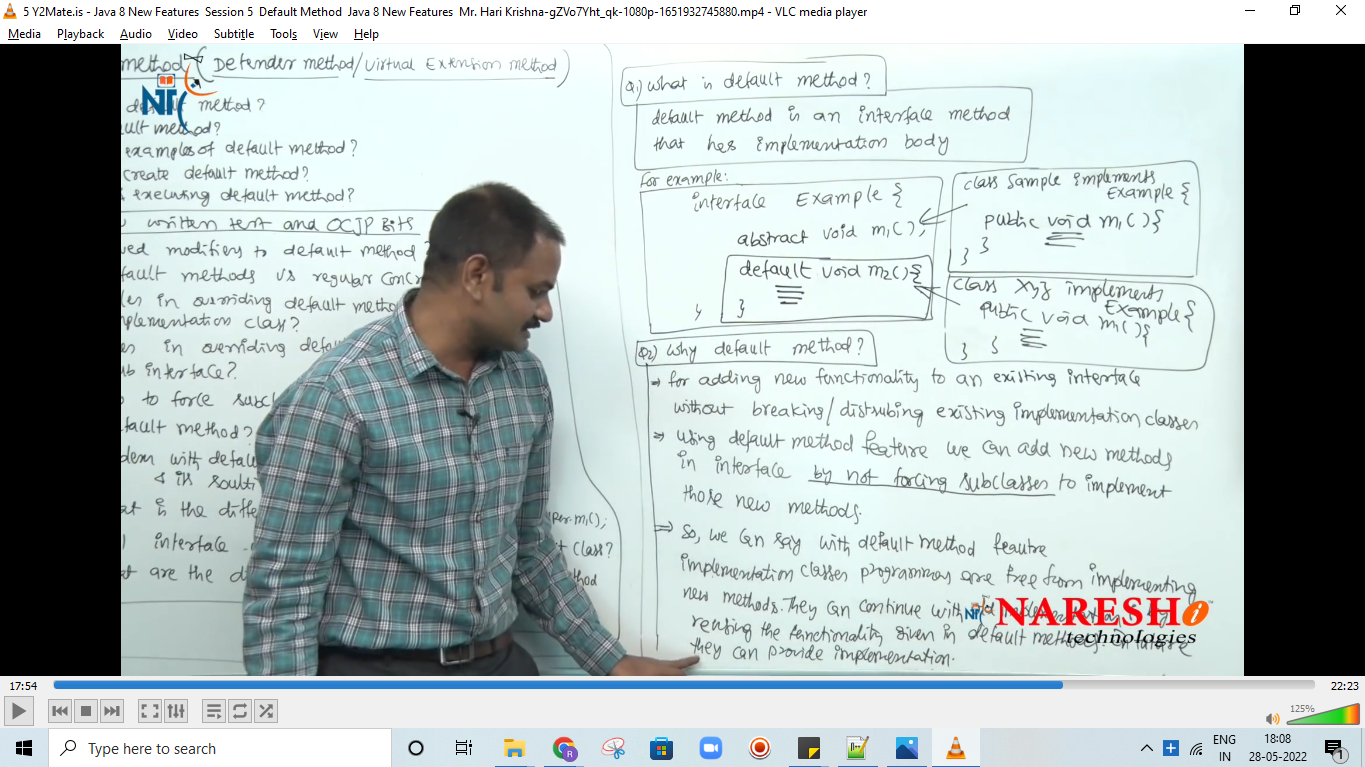 5 Y2Mate.is - Java 8 New Features Session 5 Default Method Java 8 New Features Mr. Hari Krishna-gZVo7Yht_qk-1080p-1651932745880.mp4 - VLC media player
Media Playback Audio Video Subtitle Tools View Help
method (Defender method/virtual Extension method)
method?
ault method?
examples of default method?
create default method?
executing default method?
written test and OCJP Bits
ved modifiers to default method ?
fault methods vs regular Conc
les in overriding default metho
mplementation class?
es in overriding defa
ub interface?
to force subcl
fault method?
dem with defau
& its soulti
at is the diffe
per.m1();
) interface
t class?
at are the d
thod
NT
Q1) what is default method?
default method is an interface method
that has implementation body
for example:
interface Example {
abstract void m1();
default void m2(){
}
}
class Sample implements
Example {
public void m1(){
}
}
class Xyz implements
Example {
public void m1(){
}
}
Q2) Why default method?
→ for adding new functionality to an existing interface
without breaking/distrubing existing implementation classes
⇒ using default method feature we can add new methods
in interface by not forcing subclasses to implement
those new methods.
⇒ So, we can say with default method feautre
implementation classes programmers are free from implementing
new methods. They can continue with
reusing the functionality given in default methods.
they can provide implementation.
NARESH i
technologies
17:54
22:23
125%
Type here to search
ENG
IN
18:08
28-05-2022
1